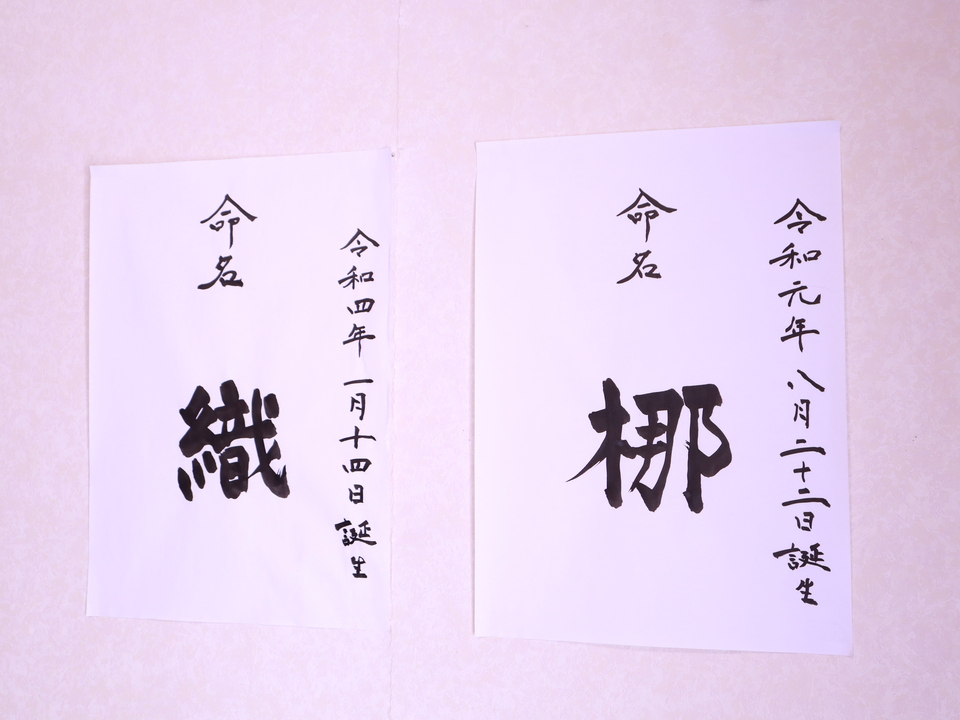 令和元年八月二十二日誕生
命名
梛
令和四年一月十四日誕生
命名
織